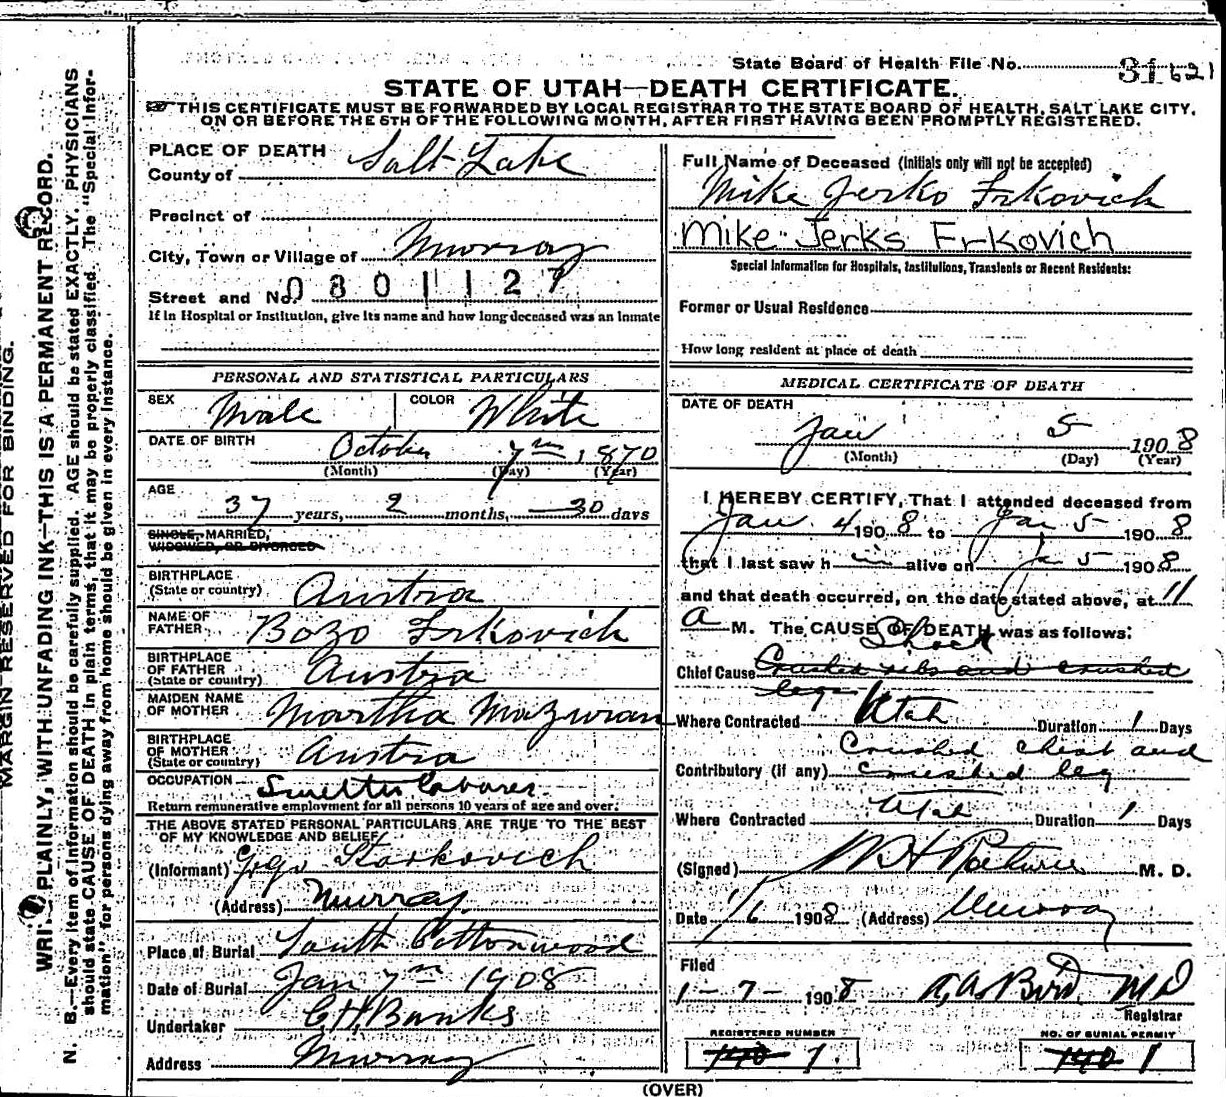 State Board of Health File No. 31621
STATE OF UTAH—DEATH CERTIFICATE.
THIS CERTIFICATE MUST BE FORWARDED BY LOCAL REGISTRAR TO THE STATE BOARD OF HEALTH, SALT LAKE CITY,
ON OR BEFORE THE 5TH OF THE FOLLOWING MONTH, AFTER FIRST HAVING BEEN PROMPTLY REGISTERED.
MARGIN RESERVED FOR BINDING.
PLAINLY, WITH UNFADING INK—THIS IS A PERMANENT RECORD.
N. B.—Every item of information should be carefully supplied. AGE should be stated EXACTLY. PHYSICIANS
should state CAUSE OF DEATH in plain terms, that it may be properly classified. The "Special Infor-
mation" for persons dying away from home should be given in every instance.
PLACE OF DEATH
County of Salt Lake
Precinct of
City, Town or Village of Murray
Street and No. 0801127
If in Hospital or Institution, give its name and how long deceased was an inmate
PERSONAL AND STATISTICAL PARTICULARS
SEX Male COLOR White
DATE OF BIRTH October 7th 1870
(Month) (Day) (Year)
AGE
37 years, 2 months, 30 days
SINGLE, MARRIED,
WIDOWED, OR DIVORCED
BIRTHPLACE
(State or country) Austra
NAME OF
FATHER Bozo Frkovich
BIRTHPLACE
OF FATHER
(State or country) Austra
MAIDEN NAME
OF MOTHER Martha Mazuran
BIRTHPLACE
OF MOTHER
(State or country) Austra
OCCUPATION Smelter laborer
Return remunerative employment for all persons 10 years of age and over.
THE ABOVE STATED PERSONAL PARTICULARS ARE TRUE TO THE BEST
OF MY KNOWLEDGE AND BELIEF
(Informant) Starkovich
(Address) Murray
Place of Burial South Cottonwood
Date of Burial Jan 7th 1908
Undertaker G.H. Banks
Address Murray
Full Name of Deceased (Initials only will not be accepted)
Mike Jerko Frkovich
Mike Jerks Frkovich
Special Information for Hospitals, Institutions, Transients or Recent Residents:
Former or Usual Residence
How long resident at place of death
MEDICAL CERTIFICATE OF DEATH
DATE OF DEATH
Jan 5 1908
(Month) (Day) (Year)
I HEREBY CERTIFY, That I attended deceased from
Jan 4 1908 to Jan 5 1908
that I last saw h im alive on Jan 5 1908
and that death occurred, on the date stated above, at 11
A M. The CAUSE OF DEATH was as follows:
Shock
Chief Cause Crushed ribs and crushed
leg
Where Contracted Utah Duration 1 Days
Crushed chest and
Contributory (if any) crushed leg
Where Contracted Utah Duration 1 Days
(Signed) M. D.
Date 1/6 1908 (Address) Murray
Filed
1-7-1908 A. A. Bird MD
Registrar
REGISTERED NUMBER NO. OF BURIAL PERMIT
140 1 140 1
(OVER)